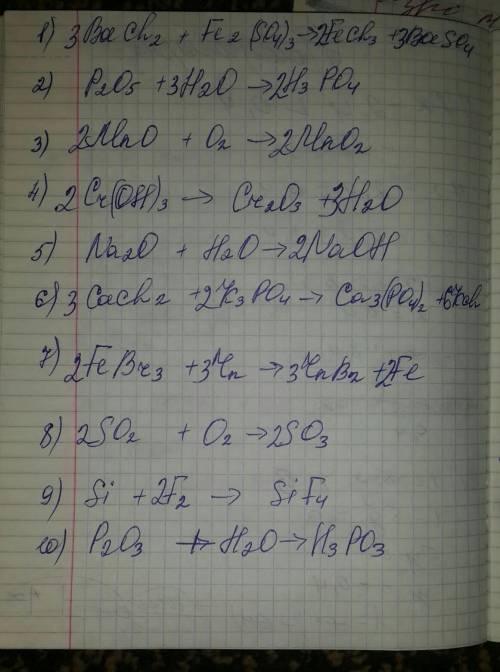 1) 3BaCl₂ + Fe₂(SO₄)₃ → 2FeCl₃ + 3BaSO₄
2) P₂O₅ + 3H₂O → 2H₃PO₄
3) 2MnO + O₂ → 2MnO₂
4) 2Cr(OH)₃ → Cr₂O₃ + 3H₂O
5) Na₂O + H₂O → 2NaOH
6) 3CaCl₂ + 2K₃PO₄ → Ca₃(PO₄)₂ + 6KCl
7) 2FeBr₃ + 3Zn → 3ZnBr₂ + 2Fe
8) 2SO₂ + O₂ → 2SO₃
9) Si + 2F₂ → SiF₄
10) P₂O₃ + H₂O → H₃PO₃